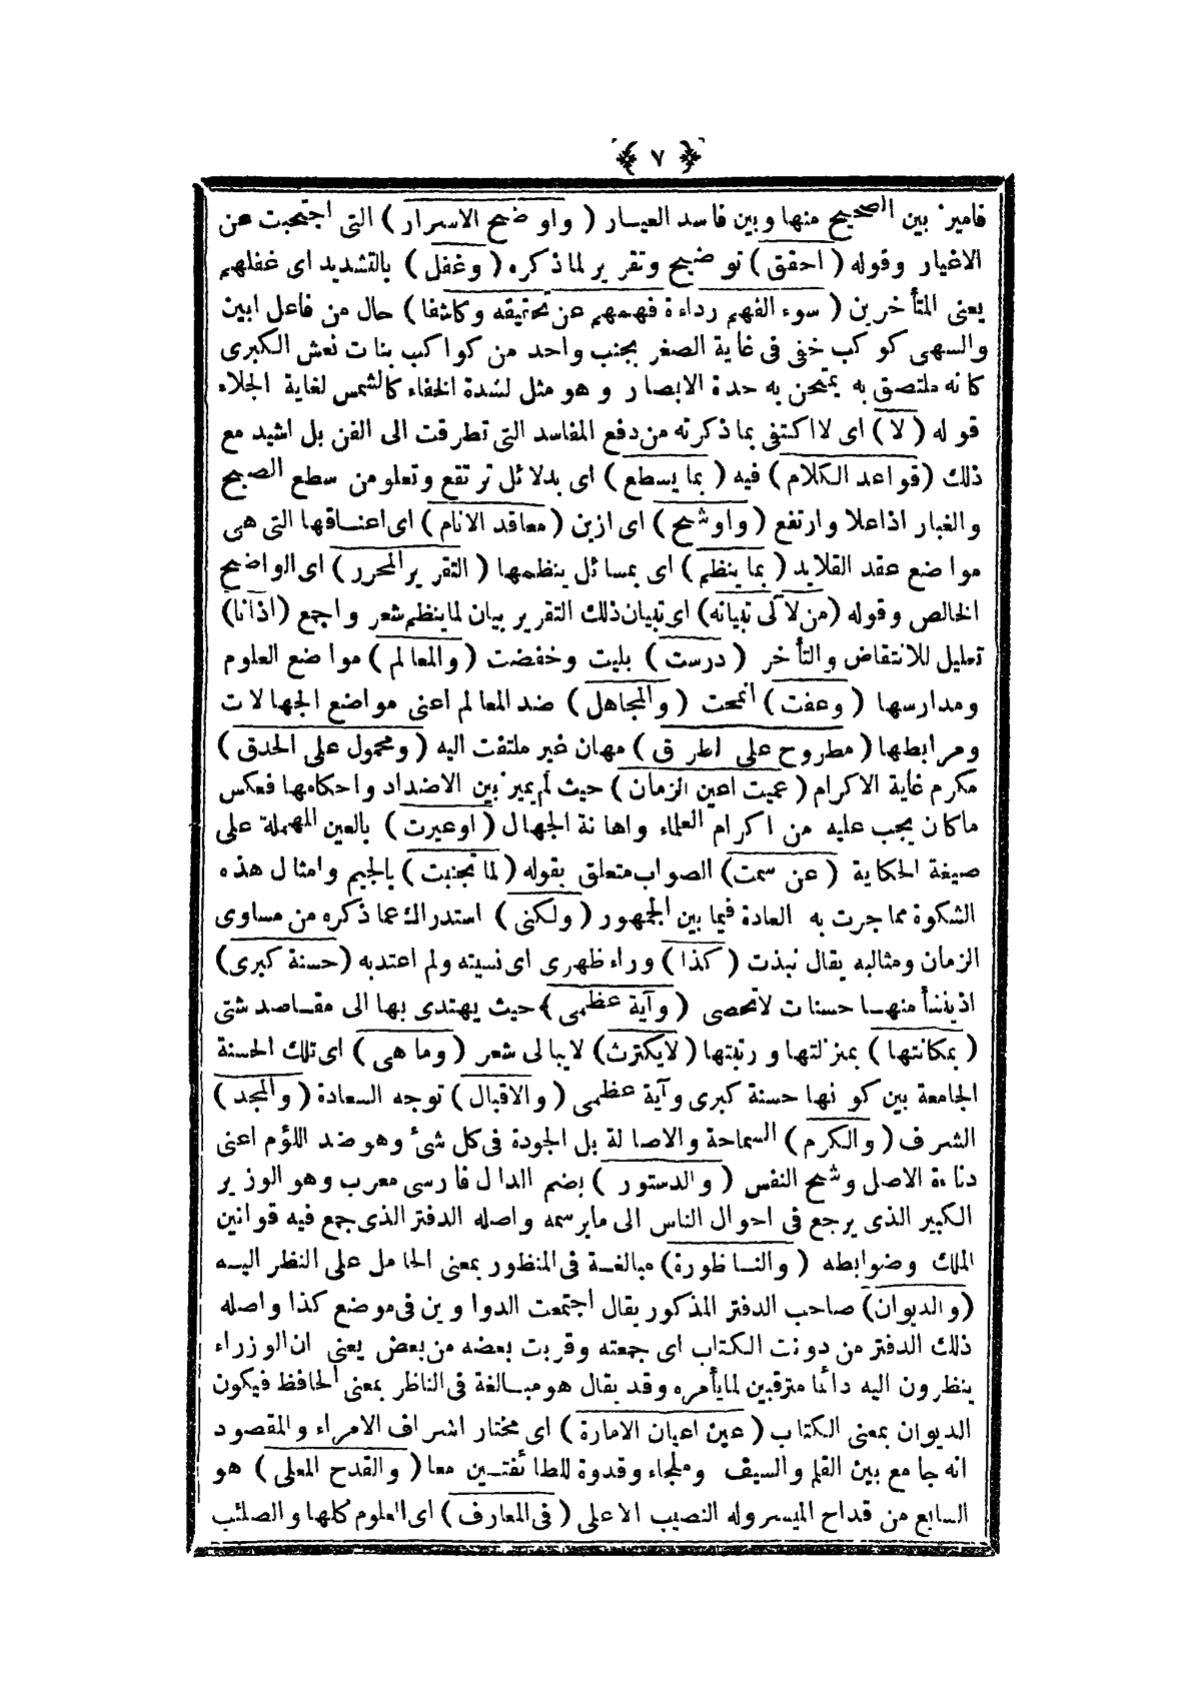 ﴿ ٧ ﴾
فاميز بين الصحيح منها وبين فاسد العيار ( واوضح الاسرار ) التى احتجبت عن
الاغيار وقوله ( احقق ) توضيح وتقرير لما ذكره ( وغفل ) بالتشديد اى غفلهم
يعنى المتأخرين ( سوء الفهم رداءة فهمهم عن تحقيقه وكاشفا ) حال من فاعل ابين
والسهى كوكب خفى فى غاية الصغر بجنب واحد من كواكب بنات نعش الكبرى
كانه ملتصق به يمتحن به حدة الابصار وهو مثل لشدة الخفاء كالشمس لغاية الجلاء
قوله ( لا ) اى لا اكتفى بما ذكرته من دفع المفاسد التى تطرقت الى الفن بل اشيد مع
ذلك ( قواعد الكلام ) فيه ( بما يسطع ) اى بدلائل ترتفع وتعلو من سطع الصبح
والغبار اذا علا وارتفع ( واوشح ) اى ازين ( معاقد الانام ) اى اعناقها التى هى
مواضع عقد القلايد ( بما ينظم ) اى بمسائل ينظمها ( التقرير المحرر ) اى الواضح
الخالص وقوله ( من لآلى تبيانه ) اى تبيان ذلك التقرير بيان لما ينظم شعر واجمع ( اذ آنا )
تعليل للانتقاض والتأخر ( درست ) بليت وخفضت ( والمعالم ) مواضع العلوم
ومدارسها ( وعفت ) انمحت ( والمجاهل ) ضد المعالم اعنى مواضع الجهالات
ومرابطها ( مطروح على اطرق ) مهان غير ملتفت اليه ( ومحمول على الحدق )
مكرم غاية الاكرام ( عميت اعين الزمان ) حيث لم يميز بين الاضداد واحكامها فعكس
ماكان يجب عليه من اكرام العلماء واهانة الجهال ( اوعيرت ) بالعين المهملة على
صيغة الحكاية ( عن سمت ) الصواب متعلق بقوله ( لما تجنبت ) بالجيم وامثال هذه
الشكوة مما جرت به العادة فيما بين الجمهور ( ولكنى ) استدراك عما ذكره من مساوى
الزمان ومثالبه يقال نبذت ( كذا ) وراء ظهرى اى نسيته ولم اعتد به ( حسنة كبرى )
اذ ينشأ منها حسنات لا تحصى ( وآية عظمى ) حيث يهتدى بها الى مقاصد شتى
( بمكانتها ) بمنزلتها ورتبتها ( لايكترث ) لايبالى شعر ( وما هى ) اى تلك الحسنة
الجامعة بين كونها حسنة كبرى وآية عظمى ( والاقبال ) توجه السعادة ( والمجد )
الشرف ( والكرم ) السماحة والاصالة بل الجودة فى كل شئ وهو ضد اللؤم اعنى
دناءة الاصل وشح النفس ( والدستور ) بضم الدال فارسى معرب وهو الوزير
الكبير الذى يرجع فى احوال الناس الى مايرسمه واصله الدفتر الذى جمع فيه قوانين
الملك وضوابطه ( والناظورة ) مبالغة فى المنظور بمعنى الحامل على النظر اليه
( والديوان ) صاحب الدفتر المذكور يقال اجتمعت الدواوين فى موضع كذا واصله
ذلك الدفتر من دونت الكتاب اى جمعته وقربت بعضه من بعض يعنى ان الوزراء
ينظرون اليه دائما مترقبين لما يأمره وقد يقال هو مبالغة فى الناظر بمعنى الحافظ فيكون
الديوان بمعنى الكتاب ( عين اعيان الامارة ) اى مختار اشراف الامراء والمقصود
انه جامع بين القلم والسيف وملجاء وقدوة للطائفتين معا ( والقدح المعلى ) هو
السابع من قداح الميسر وله النصيب الاعلى ( فى المعارف ) اى العلوم كلها والصائب